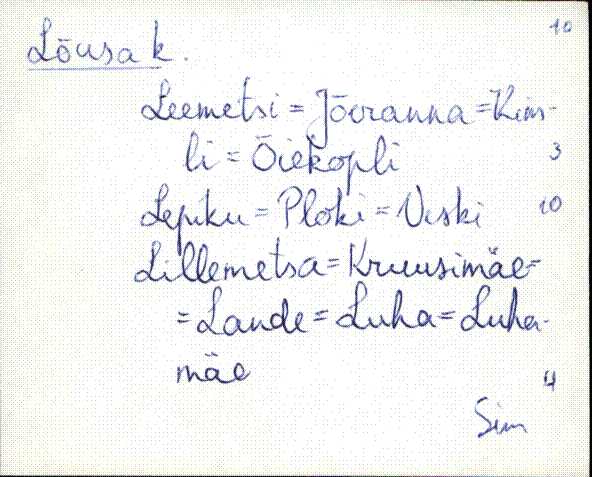 10
Lõusa k.
Leemetsi = Jõeranna = Kim-
li = Õiekopli 3
Lepiku = Ploki = Veski 10
Lillemetsa = Kruusimäe =
= Lande = Luha = Luha-
mäe 4
Sim